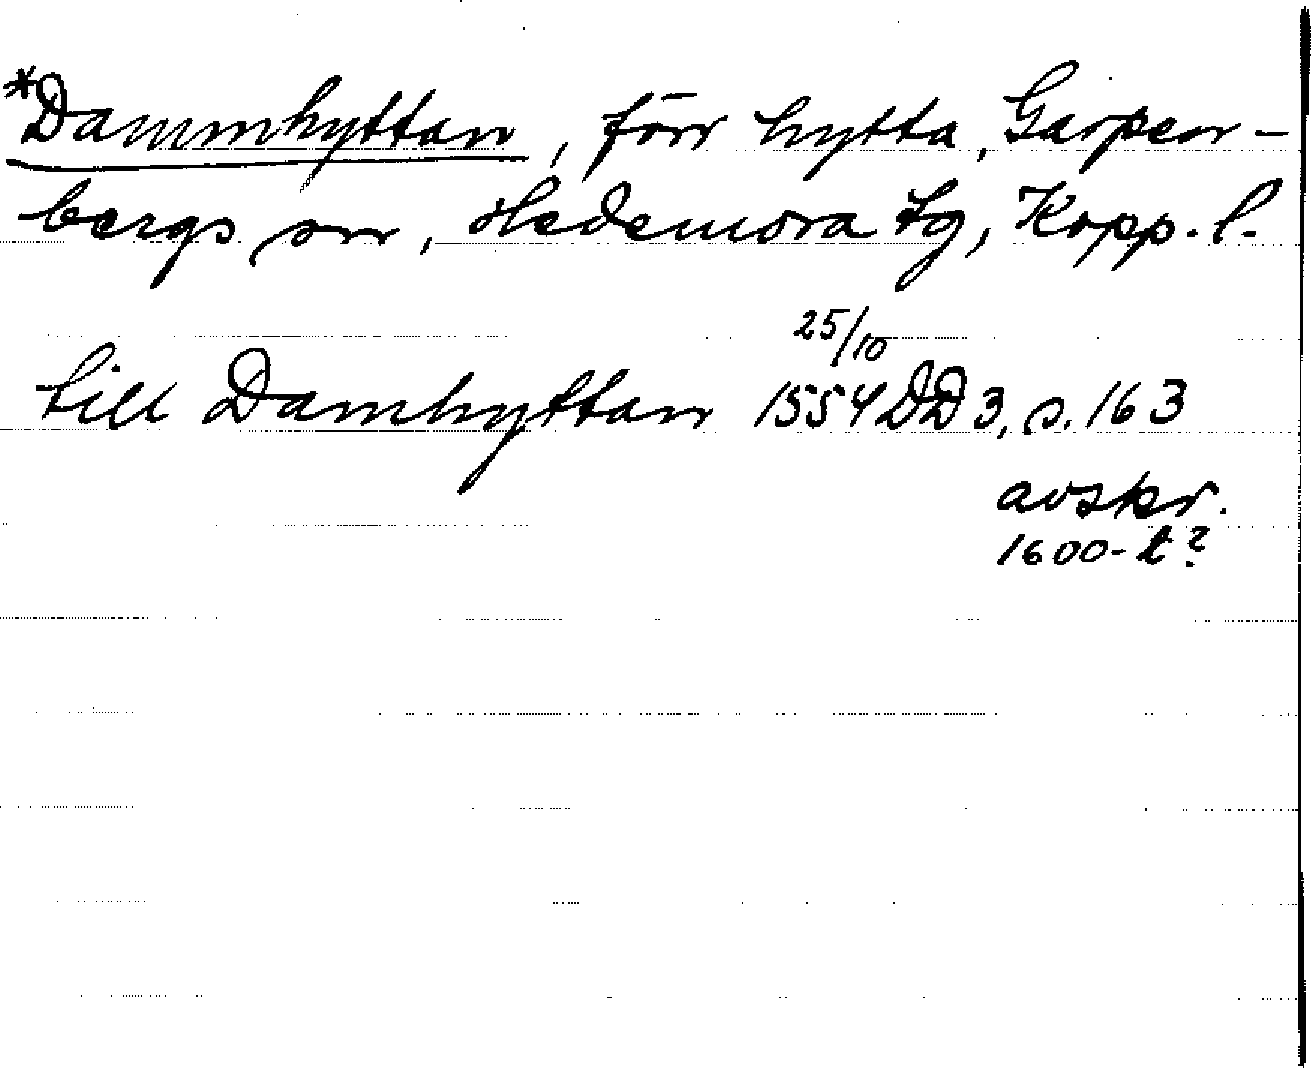 *Dammhyttan, förr hytta, Garpen-
bergs sn, Hedemora tg, Kopp. l.
25/10
till Damhyttan 1554 DD 3, s. 163
avskr.
1600-t?